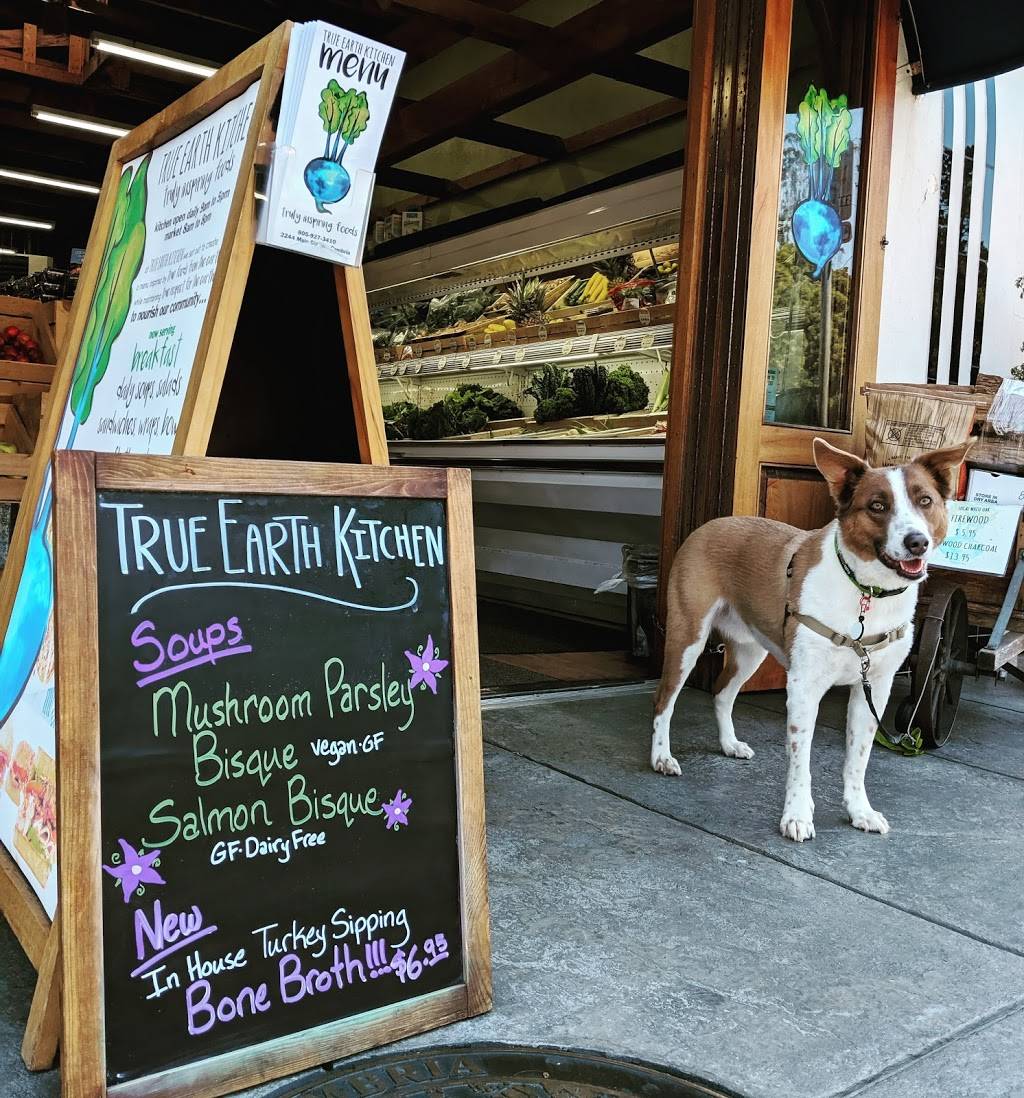 TRUE EARTH KITCHEN
menu
truly inspiring foods
805-927-3410
2244 Main
TRUE EARTH KITCHE
truly inspiring foods
kitchen open daily 9am to 5pm
market 8am to 8pm
to nourish our community...
now serving
breakfast
daily soups, salads
sandwiches wraps bow
TRUE EARTH KITCHEN
Soups
Mushroom Parsley
Bisque vegan·GF
Salmon Bisque
GF·Dairy Free
New
In House Turkey Sipping
Bone Broth!!! $6.95
STORE IN
DRY AREA
FIREWOOD
$5.95
WOOD CHARCOAL
$13.95
BRIA